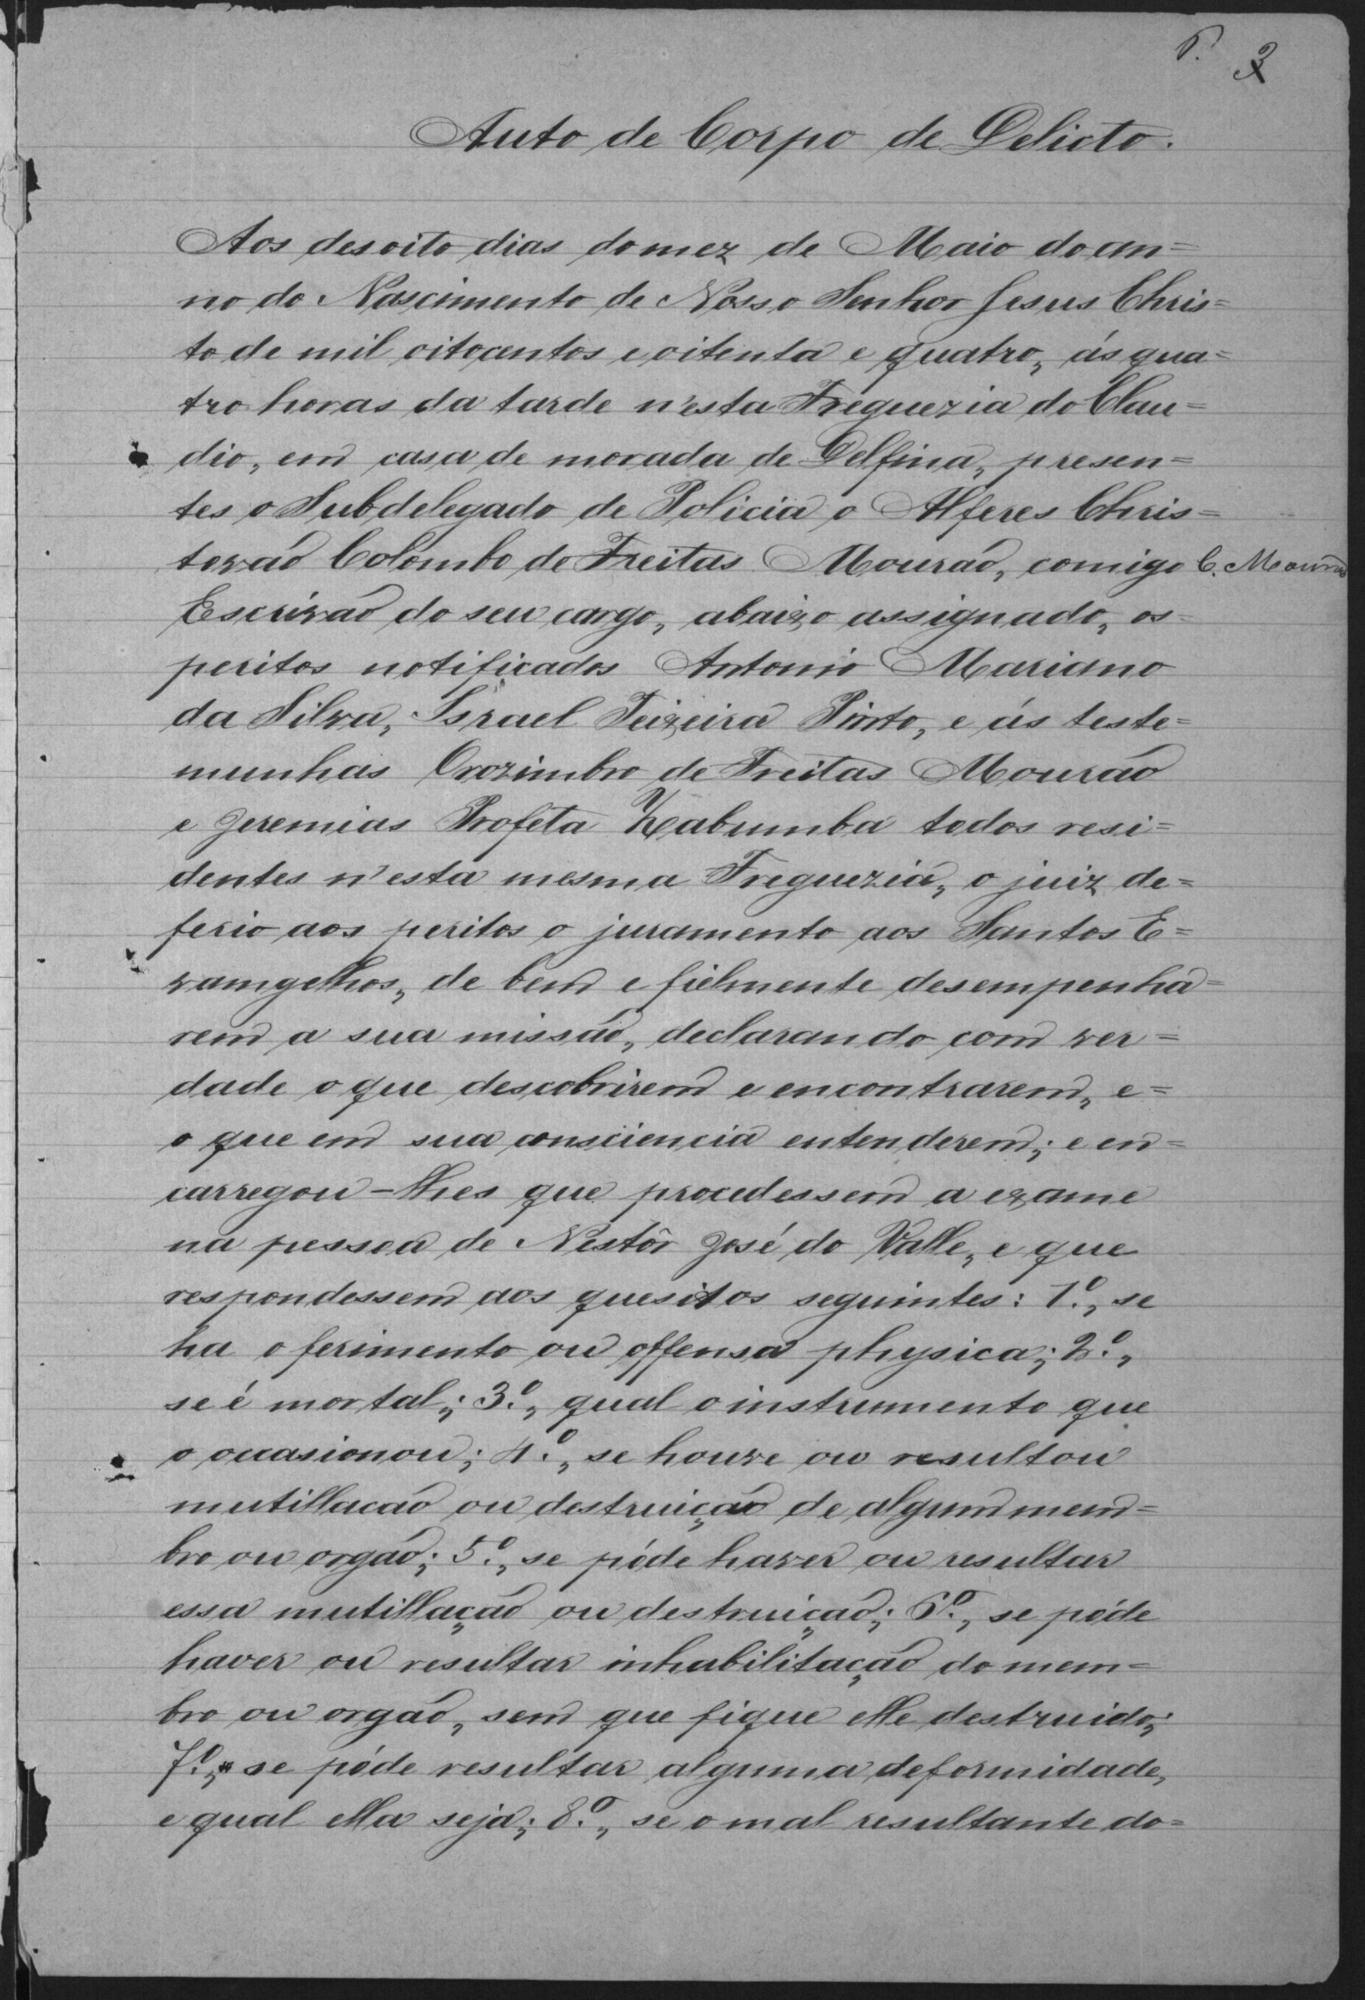 3
Auto de Corpo de Delicto.
Aos desoito dias do mez de Maio do an=
no do Nascimento de Nosso Senhor Jesus Chris=
to de mil oitocentos e oitenta e quatro, ás qua=
tro horas da tarde n'esta Freguezia do Clau=
dio, em casa de morada de Delfina, presen=
tes o Subdelegado de Policia o Alferes Chris=
tovaõ Colombo de Freitas Mouraõ, comigo C. Mouraõ
Escrivaõ do seu cargo, abaixo assignado, os=
peritos notificados Antonio Mariano
da Silva, Israel Teixeira Pinto, e ás teste=
munhas Orozimbro de Freitas Mouraõ
e Jeremias Profeta Zabumba todos resi=
dentes n'esta mesma Freguezia, o juiz de=
ferio aos peritos o juramento aos Santos E=
vamgelhos, de bem e fielmente desempenha=
rem a sua missaõ, declarando com ver=
dade o que descobrirem e encontrarem, e=
o que em sua consciencia entenderem; e en=
carregou-lhes que procedessem a exame
na pessoa de Nestôr José do Valle, e que
respondessem aos quesitos seguintes: 1º., se
ha o ferimento ou offensa physica; 2º.,
se é mortal; 3º., qual o instrumento que
o ocasionou; 4º., se houve ou resultou
mutillacaõ ou destruiçaõ de algum mem=
bro ou orgaõ; 5º., se póde haver ou resultar
essa mutillaçaõ ou destruiçaõ; 6º., se póde
haver ou resultar inhabilitaçaõ do mem=
bro ou orgaõ, sem que fique elle destruido;
7º., se póde resultar alguma deformidade,
e qual ella seja; 8º., se o mal resultante do=